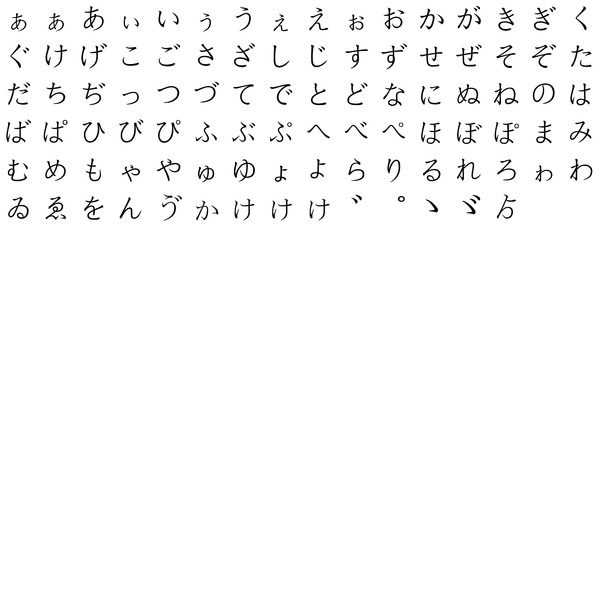 ぁ ぁ あ ぃ い ぅ う ぇ え ぉ お か が き ぎ く
ぐ け げ こ ご さ ざ し じ す ず せ ぜ そ ぞ た
だ ち ぢ っ つ づ て で と ど な に ぬ ね の は
ば ぱ ひ び ぴ ふ ぶ ぷ へ べ ぺ ほ ぼ ぽ ま み
む め も ゃ や ゅ ゆ ょ よ ら り る れ ろ ゎ わ
ゐ ゑ を ん ゔ ゕ ゖ ゖ ゖ ゛ ゜ ゝ ゞ ゟ